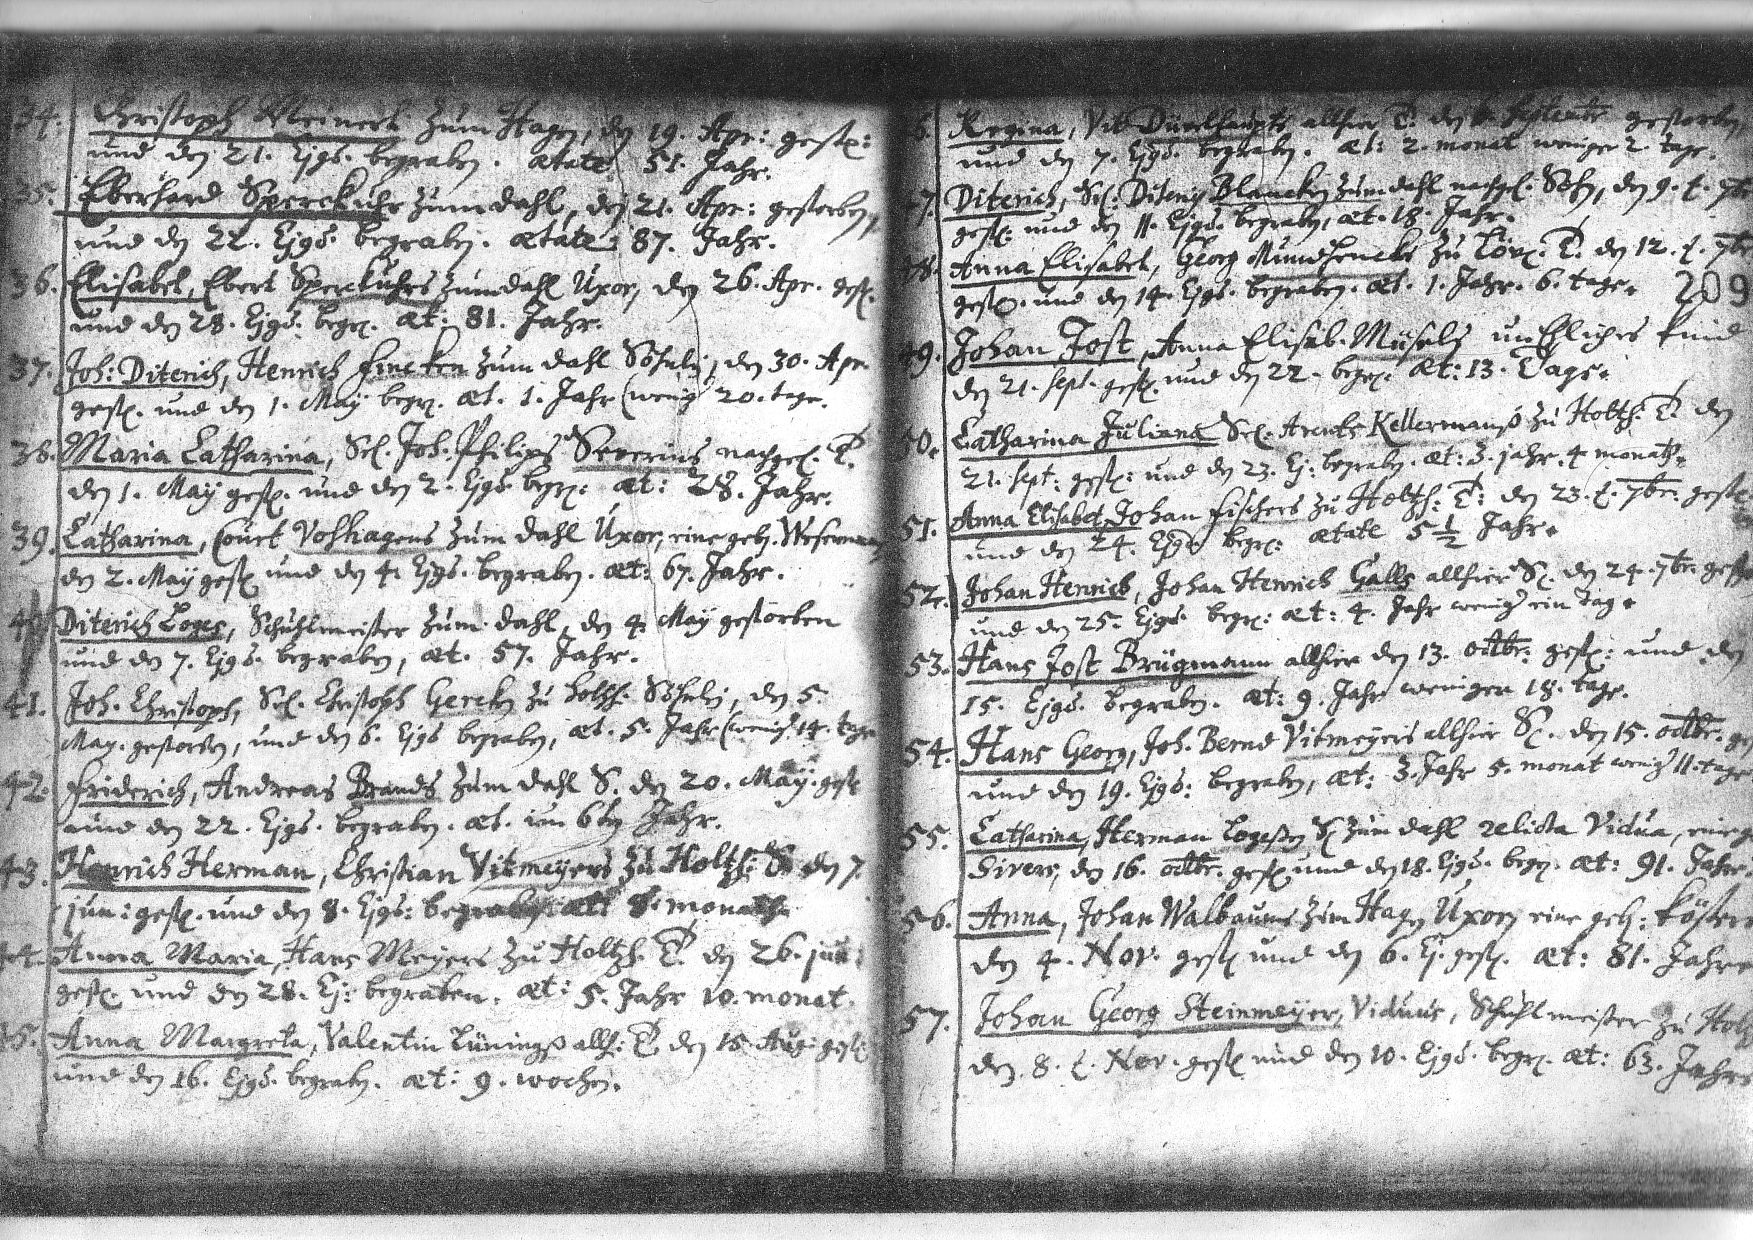 34. Christoph Meinert zum Hagen, den 19. Apr: gest:
und den 21. Ejgs. begraben. ætate 51. Jahr.
35. Eberhard Sperckuhr zum dahl, den 21. Apr: gestorben,
und den 22. Ejgs. begraben. ætate: 87. Jahr.
36. Elisabet, Ebert Sperckuhrs zum dahl Uxor, den 26. Apr. gest.
und den 28. Ejgs. begr. æt: 81. Jahr.
37. Joh: Diterich, Henrich fincken zum dahl Söhnl, den 30. Apr.
gest. und den 1. May begr. æt. 1. Jahr (wenig 20. tage.
38. Maria Catharina, Sel. Joh. Philips Severins nachgel. T.
den 1. May gest. und den 2. Ejgs begr: æt: 28. Jahr.
39. Catharina, Court Voshagens zum dahl Uxor, eine geb.
den 2. May gest und den 4. Ejgs. begraben. æt: 67. Jahr.
40. Diterich Loges, Schuhlmeister zum dahl, den 4. May gestorben
und den 7. Ejgs. begraben, æt. 57. Jahr.
41. Joh. Christoph, Sel. Christoph Gercken zu holtzh. Söhnl, den 5.
May. gestorben, und den 6. Ejgs begraben, æt. 5. Jahr (wenig 14. tage
42. friderich, Andreas Brands zum dahl S. den 20. May. gest
und den 22. Ejgs. begraben. æt. im 6ten Jahr.
43. Henrich Herman, Christian Vitmeyers zu Holtzh: S. den 7.
jun: gest. und den 8. Ejgs: begraben: æt: 8. monath.
44. Anna Maria, Hans Meyers zu Holtzh. T. den 26. jun:
gest. und den 28. Ej: begraben. æt: 5. Jahr 10. monat.
45. Anna Margreta, Valentin Lünings allh: T. den 15. Aug: gest:
und den 16. Ejgs. begraben. æt: 9. wochen.
6. Regina, Vit allhier T. den Septembr gestorben,
und den 7. Ejgs. begraben. æt: 2. monat weniger 2. tage.
47. Diterich, Sel: Diterich Blancken zum dahl nachgel. Sohn, den 9. 7br
gest: und den 11. Ejgs. begraben, æt. 18. Jahr.
48. Anna Elisabet, Georg Mundhencks zu T. den 12. 7br
gest. und den 14. Ejgs. begraben. æt. 1. Jahr. 6. tage.
209
49. Johan Jost, Anna Elisab. unEhliches kind
den 21. sept. gest. und den 22. begr. æt: 13. Tage.
50. Catharina Juliana Sel. Arents Kellermans zu Holtzh. T. den
21. sept: gest: und den 23. Ej: begraben. æt: 3. jahr. 4 monath.
51. Anna Elisabet Johan fischers zu Holtzh: T: den 23. 7br: gest:
und den 24. Ejgs begr: ætate 5 1/2 Jahr.
52. Johan Henrich, Johan Henrich Galls allhier S. den 24. 7br. gest
und den 25. Ejgs. begr: æt: 4. Jahr wenig ein tag.
53. Hans Jost Brügmann allhier den 13. octbr. gest: und den
15. Ejgs. begraben. æt: 9. Jahr weniger 18. tage.
54. Hans Georg, Joh. Bernd Vitmeyers allhier S. den 15. octbr. ge
und den 19. Ejgs: begraben, æt: 3. Jahr 5. monat wenig 11. tage
55. Catharina, Herman zum dahl relicta Vidua, eine g
Sivers, den 16. octbr. gest und den 18. Ejgs. begr. æt: 91. Jahr.
56. Anna, Johan Walbaums zum Hagen Uxor, eine geb: Kösters
den 4. Nov. gest und den 6. Ej. gest. æt: 81. Jahr
57. Johan Georg Steinmeyer, Viduus, Schuhlmeister zu Holtz
den 8. Nov. gest und den 10. Ejgs. begr. æt: 63. Jahr